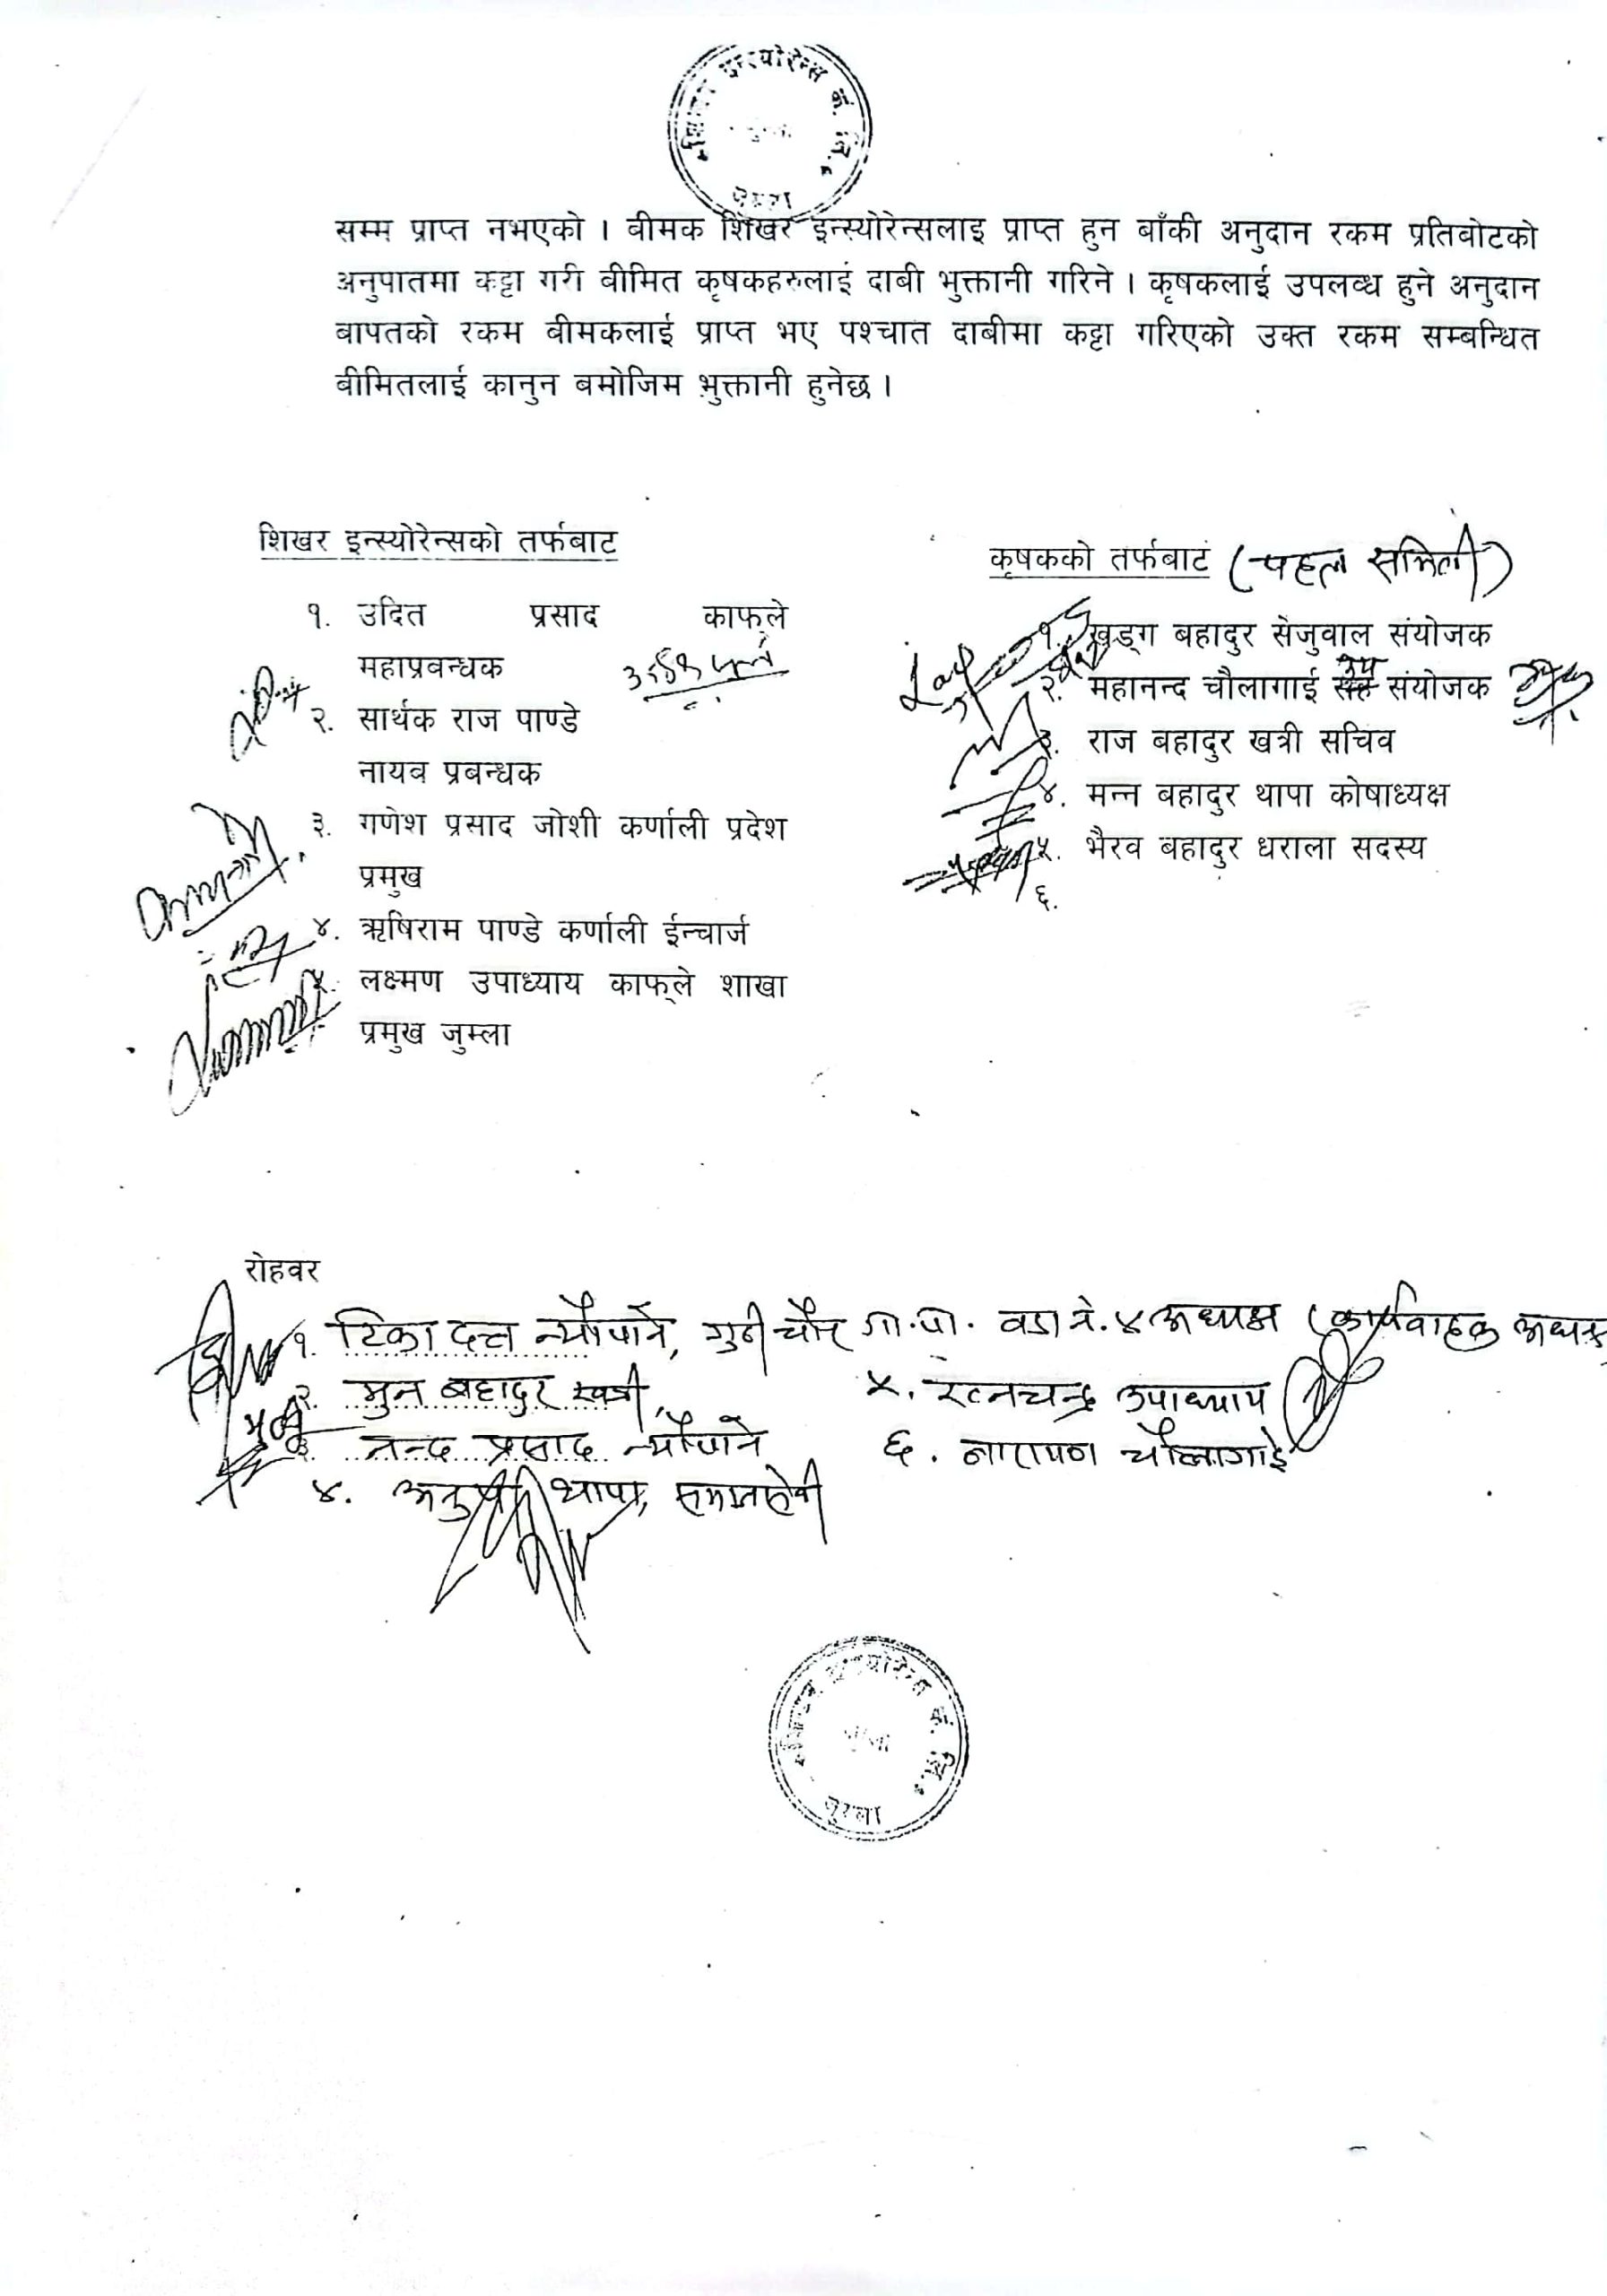 इन्स्योरेन्स कं. लि.
जुम्ला
सम्म प्राप्त नभएको । बीमक शिखर इन्स्योरेन्सलाइ प्राप्त हुन बाँकी अनुदान रकम प्रतिबोटको
अनुपातमा कट्टा गरी बीमित कृषकहरुलाई दाबी भुक्तानी गरिने । कृषकलाई उपलव्ध हुने अनुदान
बापतको रकम बीमकलाई प्राप्त भए पश्चात दाबीमा कट्टा गरिएको उक्त रकम सम्बन्धित
बीमितलाई कानुन बमोजिम भुक्तानी हुनेछ ।
शिखर इन्स्योरेन्सको तर्फबाट
१. उदित प्रसाद काफ्ले
महाप्रवन्धक
२. सार्थक राज पाण्डे
नायव प्रबन्धक
३. गणेश प्रसाद जोशी कर्णाली प्रदेश
प्रमुख
४. ऋषिराम पाण्डे कर्णाली ईन्चार्ज
५. लक्ष्मण उपाध्याय काफ्ले शाखा
प्रमुख जुम्ला
कृषकको तर्फबाट (पहल समिती)
१. खड्ग बहादुर सेजुवाल संयोजक
२. महानन्द चौलागाई उप संयोजक
३. राज बहादुर खत्री सचिव
४. मन्न बहादुर थापा कोषाध्यक्ष
५. भैरव बहादुर धराला सदस्य
६.
रोहवर
१. टिका दत्त न्यौपाने, गुठीचौर गा.पा. वडा नं. ४ अध्यक्ष (कार्यवाहक अध्यक्ष
२. मुन बहादुर खत्री
३. नन्द प्रसाद न्यौपाने
४. थापा, समाजसेवी
५. रत्नचन्द्र उपाध्याय
६. नारायण चौलागाई
इन्स्योरेन्स कं. लि.